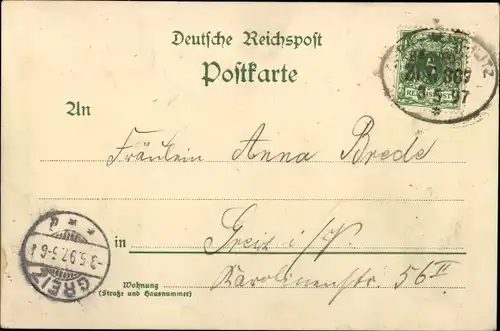 Deutsche Reichspost
Postkarte
ZUG 369
3 5 97
REICHSPOST
An
Fräulein Anna Brede
in Greiz i/V.
Wohnung
(Straße und Hausnummer)
Karolinenstr. 56 II
GREIZ
-3.5.97.5-6